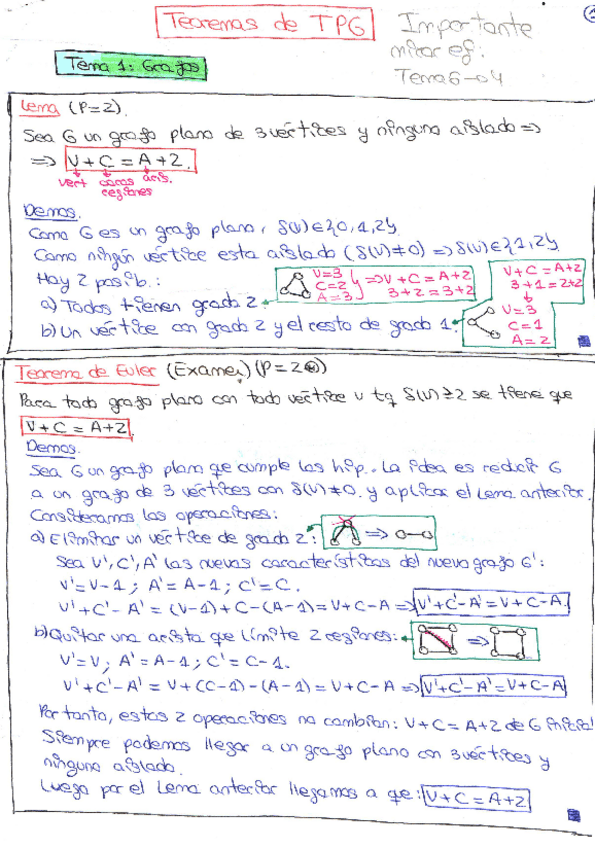 Teoremas de TPG
Importante
mirar ej:
Tema 6-04
Tema 1: Grafos
Lema (P=2).
Sea G un grafo plano de 3 vértices y ninguno aislado =>
=> V + C = A + 2.
vert caras aris.
regiones
Demos.
Como G es un grafo plano, δ(v)∈{0,1,2}.
Como ningún vértice esta aislado (δ(v)≠0) => δ(v)∈{1,2}
Hay 2 posib.:
V=3
C=2
A=3
=> V+C = A+2
3+2 = 3+2
V+C = A+2
3+1 = 2+2
V=3
C=1
A=2
a) Todos tienen grado 2.
b) Un vértice con grado 2 y el resto de grado 1.
Teorema de Euler (Examen) (P=2)
Para todo grafo plano con todo vértice v tq δ(v)≥2 se tiene que
V+C = A+2.
Demos.
Sea G un grafo plano que cumple las hip.. La idea es reducir G
a un grafo de 3 vértices con δ(v)≠0. y aplicar el Lema anterior.
Consideramos las operaciones:
a) Eliminar un vértice de grado 2:
=>
Sea V', C', A' las nuevas características del nuevo grafo G':
V'=V-1; A'=A-1; C'=C.
V'+C'-A' = (V-1)+C-(A-1) = V+C-A => V'+C'-A' = V+C-A.
b) Quitar una arista que límite 2 regiones:
=>
V'=V; A'=A-1; C'=C-1.
V'+C'-A' = V+(C-1)-(A-1) = V+C-A => V'+C'-A'=V+C-A
Por tanto, estas 2 operaciones no cambian: V+C = A+2 de G inicial
Siempre podemos llegar a un grafo plano con 3 vértices y
ninguno aislado.
Luego por el Lema anterior llegamos a que: V+C = A+2